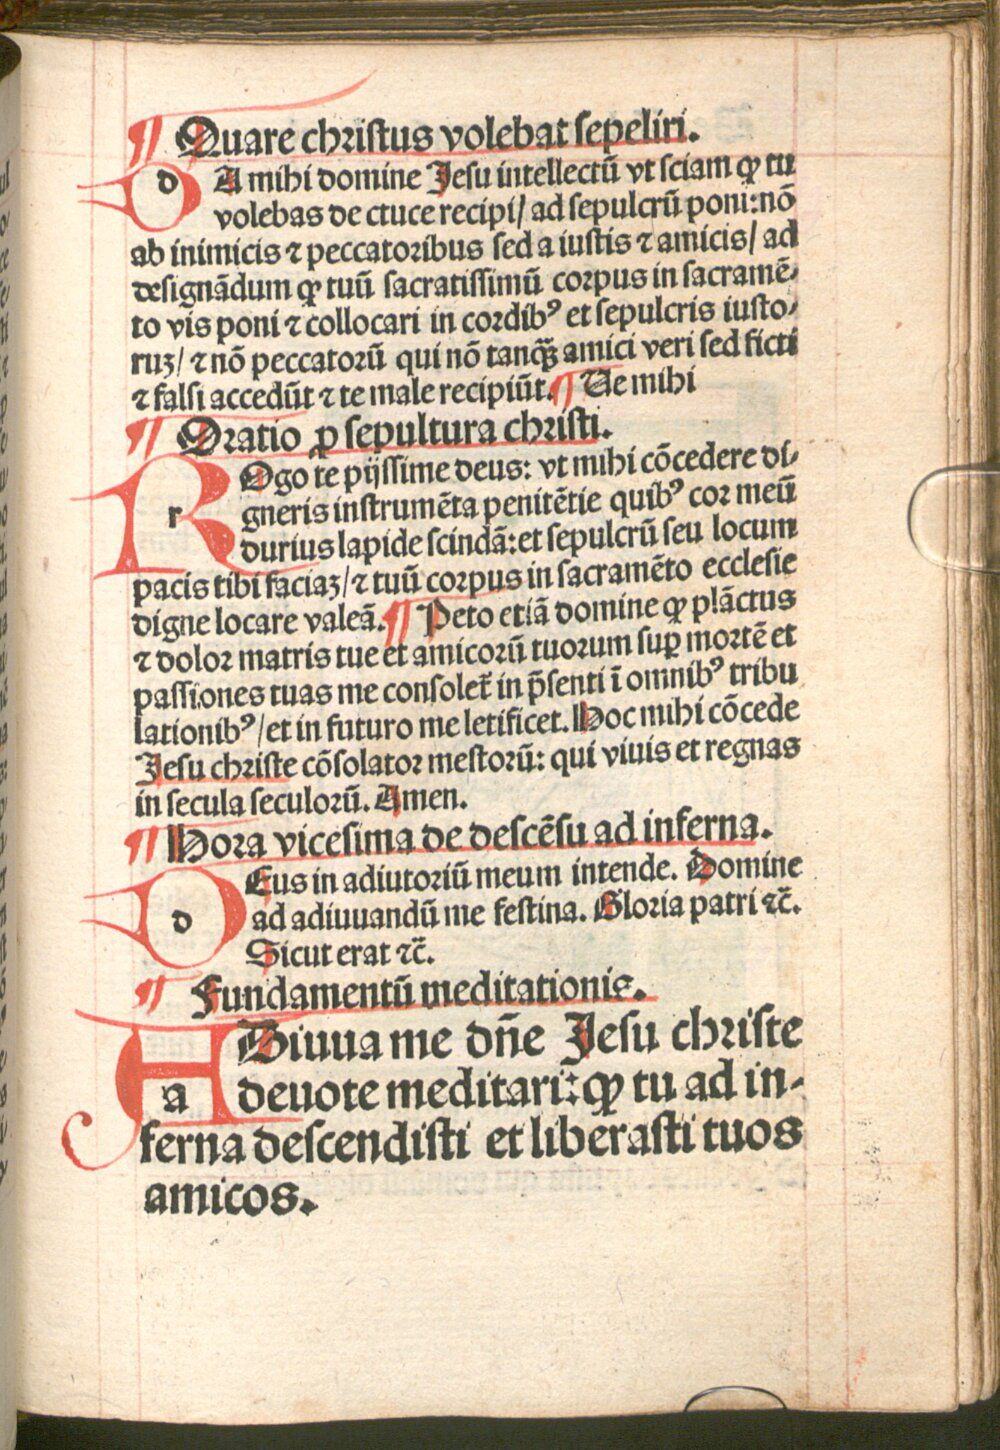 ¶ Quare christus volebat sepeliri.
DA mihi domine Jesu intellectū vt sciam ꝙ tu
volebas de ctuce recipi/ ad sepulcrū poni:nō
ab inimicis ⁊ peccatoribus sed a iustis ⁊ amicis/ ad
designādum ꝙ tuū sacratissimū corpus in sacramē⸗
to vis poni ⁊ collocari in cordibꝰ et sepulcris iusto⸗
ruꝫ/ ⁊ nō peccatorū qui nō tanqꝫ̄ amici veri sed ficti
⁊ falsi accedūt ⁊ te male recipiūt. ¶ Ue mihi
¶ Oratio ꝓ sepultura christi.
ROgo te pijssime deus: vt mihi cōcedere di⸗
gneris instrumēta penitētie quibꝰ cor meū
durius lapide scindā:et sepulcrū seu locum
pacis tibi faciaꝫ/⁊ tuū corpus in sacramēto ecclesie
digne locare valeā. ¶ Peto etiā domine ꝙ plāctus
⁊ dolor matris tue et amicorū tuorum suꝑ mortē et
passiones tuas me consolet̄ in p̄senti ī omnibꝰ tribu
lationibꝰ/et in futuro me letificet. Hoc mihi cōcede
Jesu christe cōsolator mestorū: qui viuis et regnas
in secula seculorū. Amen.
¶ Hora vicesima de descēsu ad inferna.
DEus in adiutoriū meum intende. Domine
ad adiuuandū me festina. Gloria patri ⁊c̄.
Sicut erat ⁊c̄.
¶ Fundamentū meditationis.
ADiuua me dn̄e Jesu christe
deuote meditari:ꝙ tu ad in⸗
ferna descendisti et liberasti tuos
amicos.